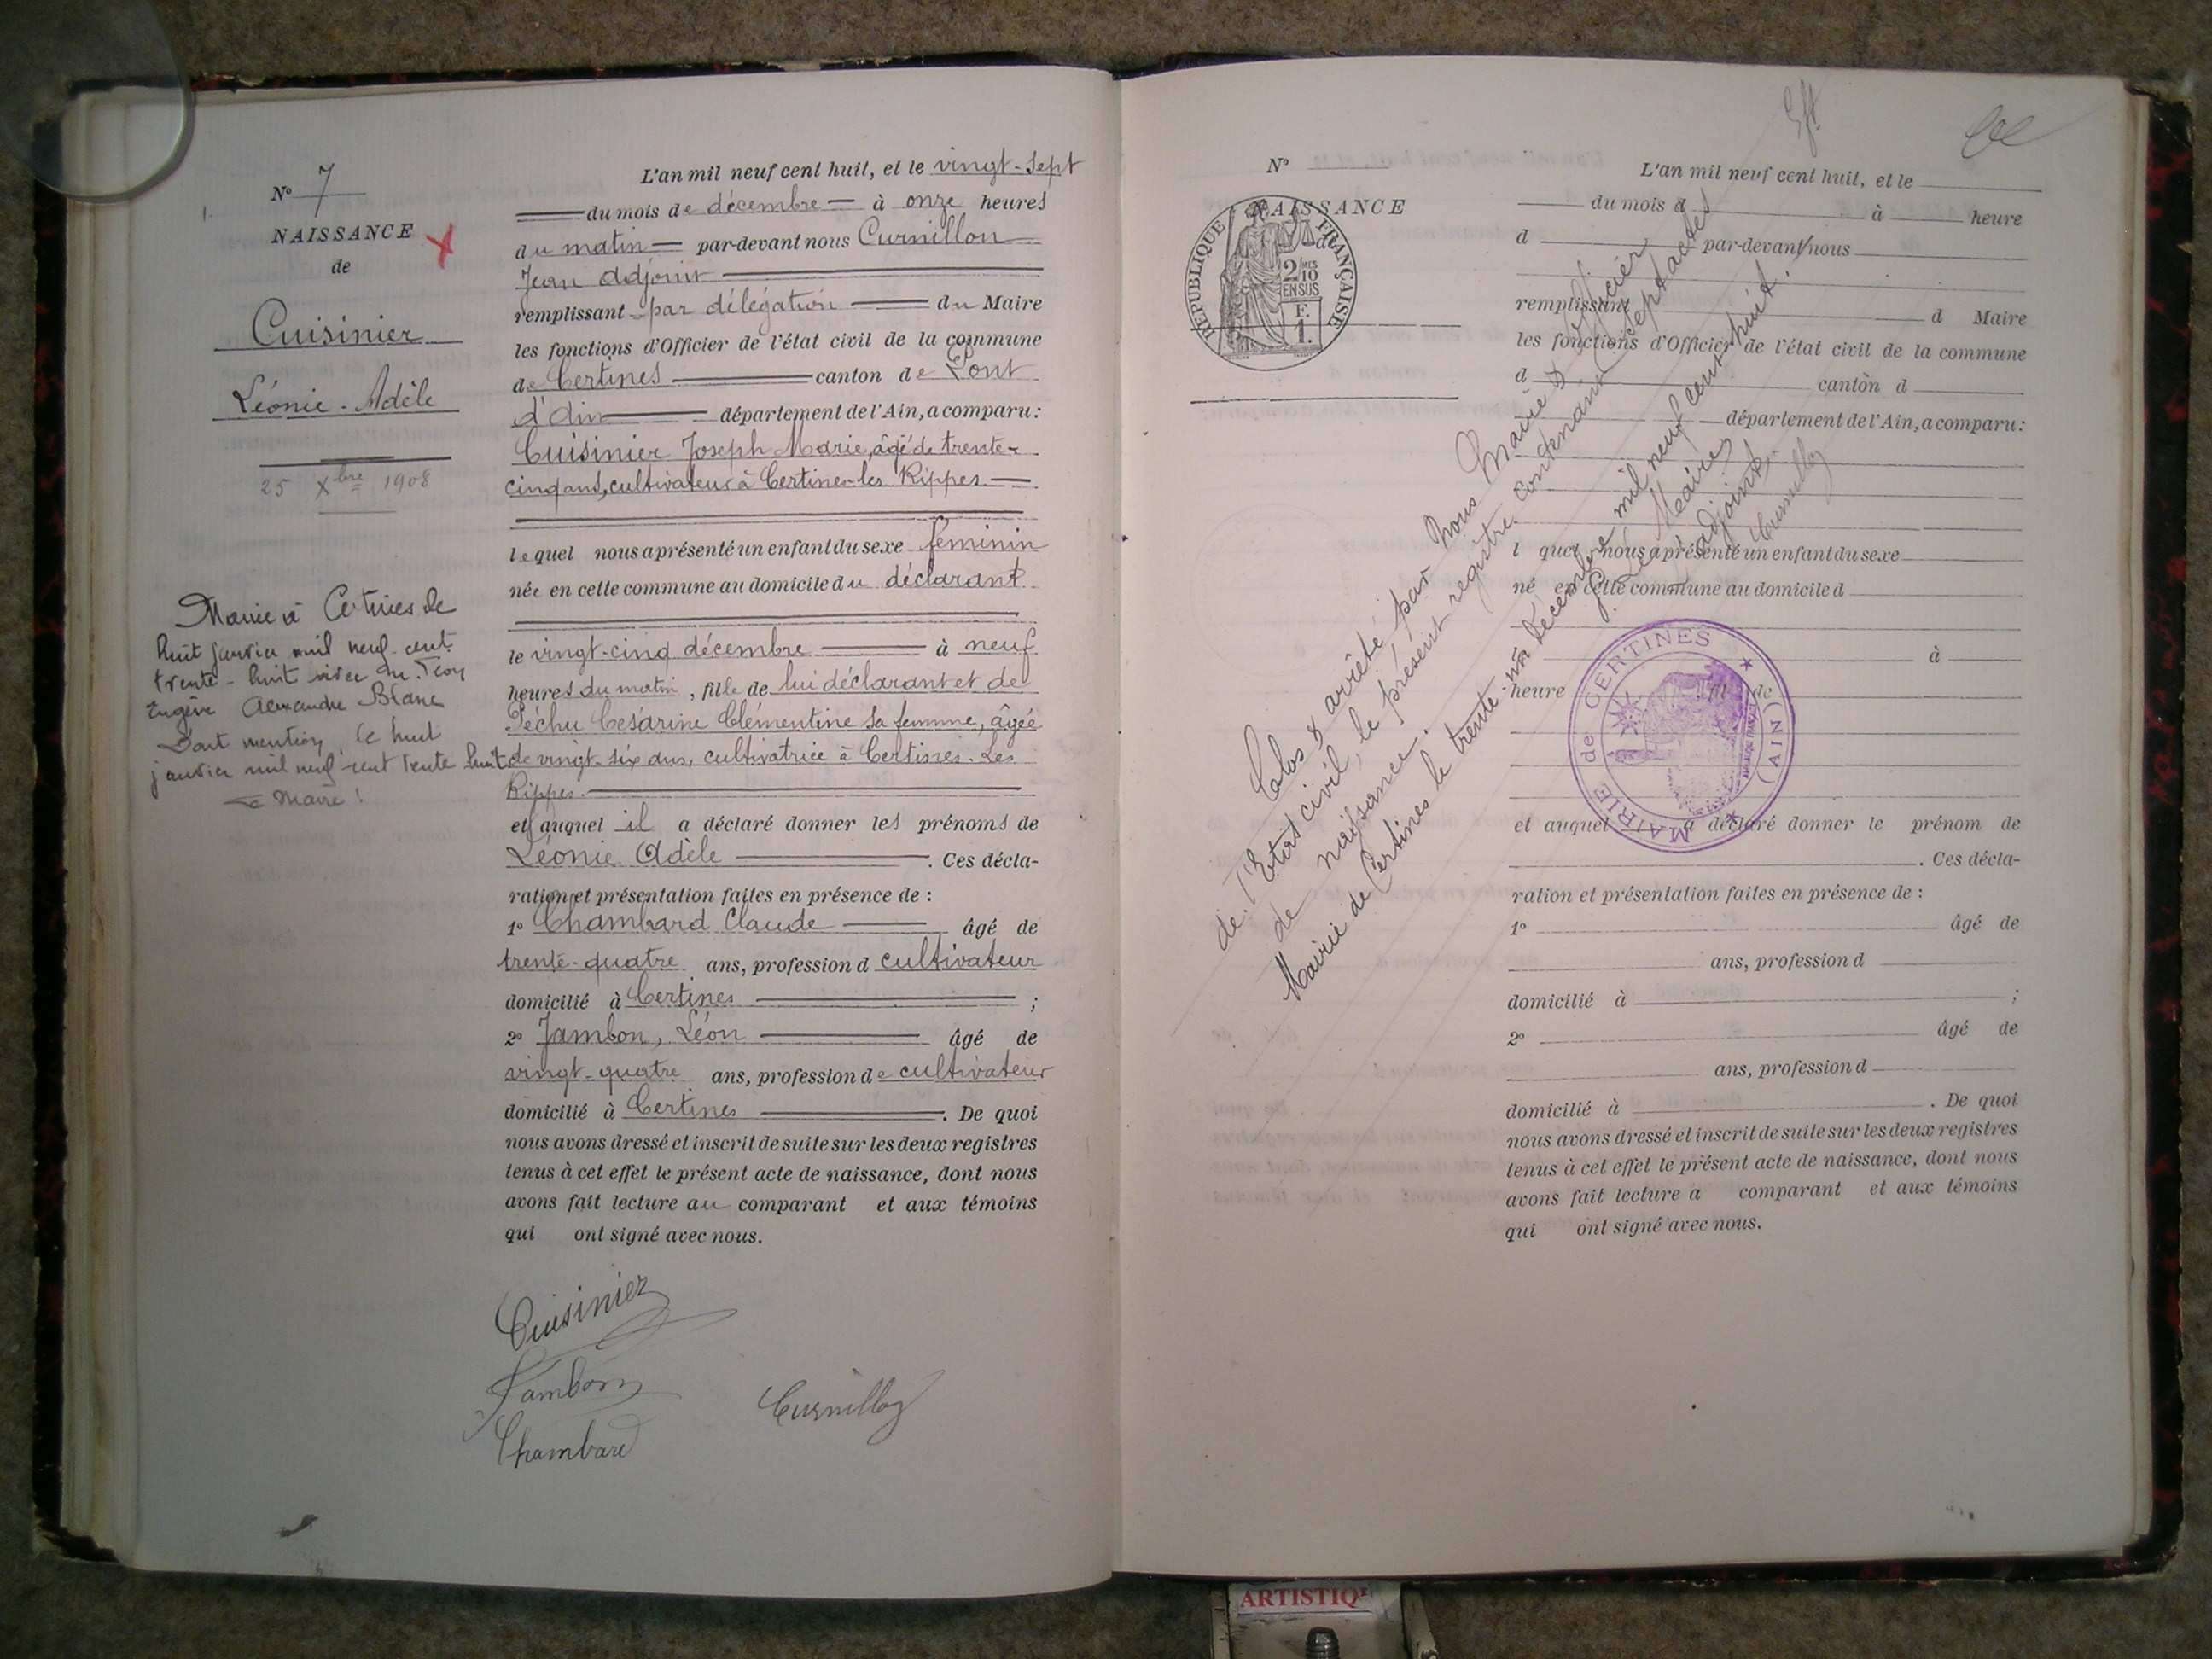 N° 7
NAISSANCE
de
Cuisinier
Léonie-Adèle
25 Xbre 1908
Mariée à Certines le
huit janvier mil neuf cent
trente-huit avec Léon
Eugène Alexandre Blanc
Dont mention, le huit
janvier mil neuf cent trente huit
Le Maire :
L'an mil neuf cent huit, et le vingt-sept
du mois de décembre à onze heures
du matin par-devant nous Curnillon
Jean adjoint
remplissant par délégation du Maire
les fonctions d'Officier de l'état civil de la commune
de Certines canton de Pont
d'Ain département de l'Ain, a comparu :
Cuisinier Joseph Marie, âgé de trente-
cinq ans, cultivateur à Certines-les Rippes.
lequel nous a présenté un enfant du sexe féminin
née en cette commune au domicile du déclarant
le vingt-cinq décembre à neuf
heures du matin, fille de lui déclarant et de
Péchu Césarine Clémentine sa femme, âgée
de vingt-six ans, cultivatrice à Certines. Les
Rippes.
et auquel il a déclaré donner les prénoms de
Léonie Adèle . Ces décla-
ration et présentation faites en présence de :
1° Chambard Claude âgé de
trente-quatre ans, profession d cultivateur
domicilié à Certines ;
2° Jambon, Léon âgé de
vingt-quatre ans, profession de cultivateur
domicilié à Certines . De quoi
nous avons dressé et inscrit de suite sur les deux registres
tenus à cet effet le présent acte de naissance, dont nous
avons fait lecture au comparant et aux témoins
qui ont signé avec nous.
Cuisinier
Jambon
Chambard
Curnillon
N°
NAISSANCE
d
REPUBLIQUE FRANÇAISE
2/10 MES
EN SUS
F.
1.
L'an mil neuf cent huit, et le
du mois d à heure
d par-devant nous
remplissant d Maire
les fonctions d'Officier de l'état civil de la commune
d canton d
département de l'Ain, a comparu :
l quel nous a présenté un enfant du sexe
né en cette commune au domicile d
le à
heure , fil de
et auquel a déclaré donner le prénom de
. Ces décla-
ration et présentation faites en présence de :
1° âgé de
ans, profession d
domicilié à ;
2° âgé de
ans, profession d
domicilié à . De quoi
nous avons dressé et inscrit de suite sur les deux registres
tenus à cet effet le présent acte de naissance, dont nous
avons fait lecture a comparant et aux témoins
qui ont signé avec nous.
Clos & arrêté par nous Maire & officier
de l'Etat civil, le présent registre contenant sept actes
de naissance.
Mairie de Certines le trente-un décembre mil neuf cent huit.
P. Le Maire,
l'adjoint
Curnillon
MAIRIE de CERTINES (AIN)
ARTISTIQ